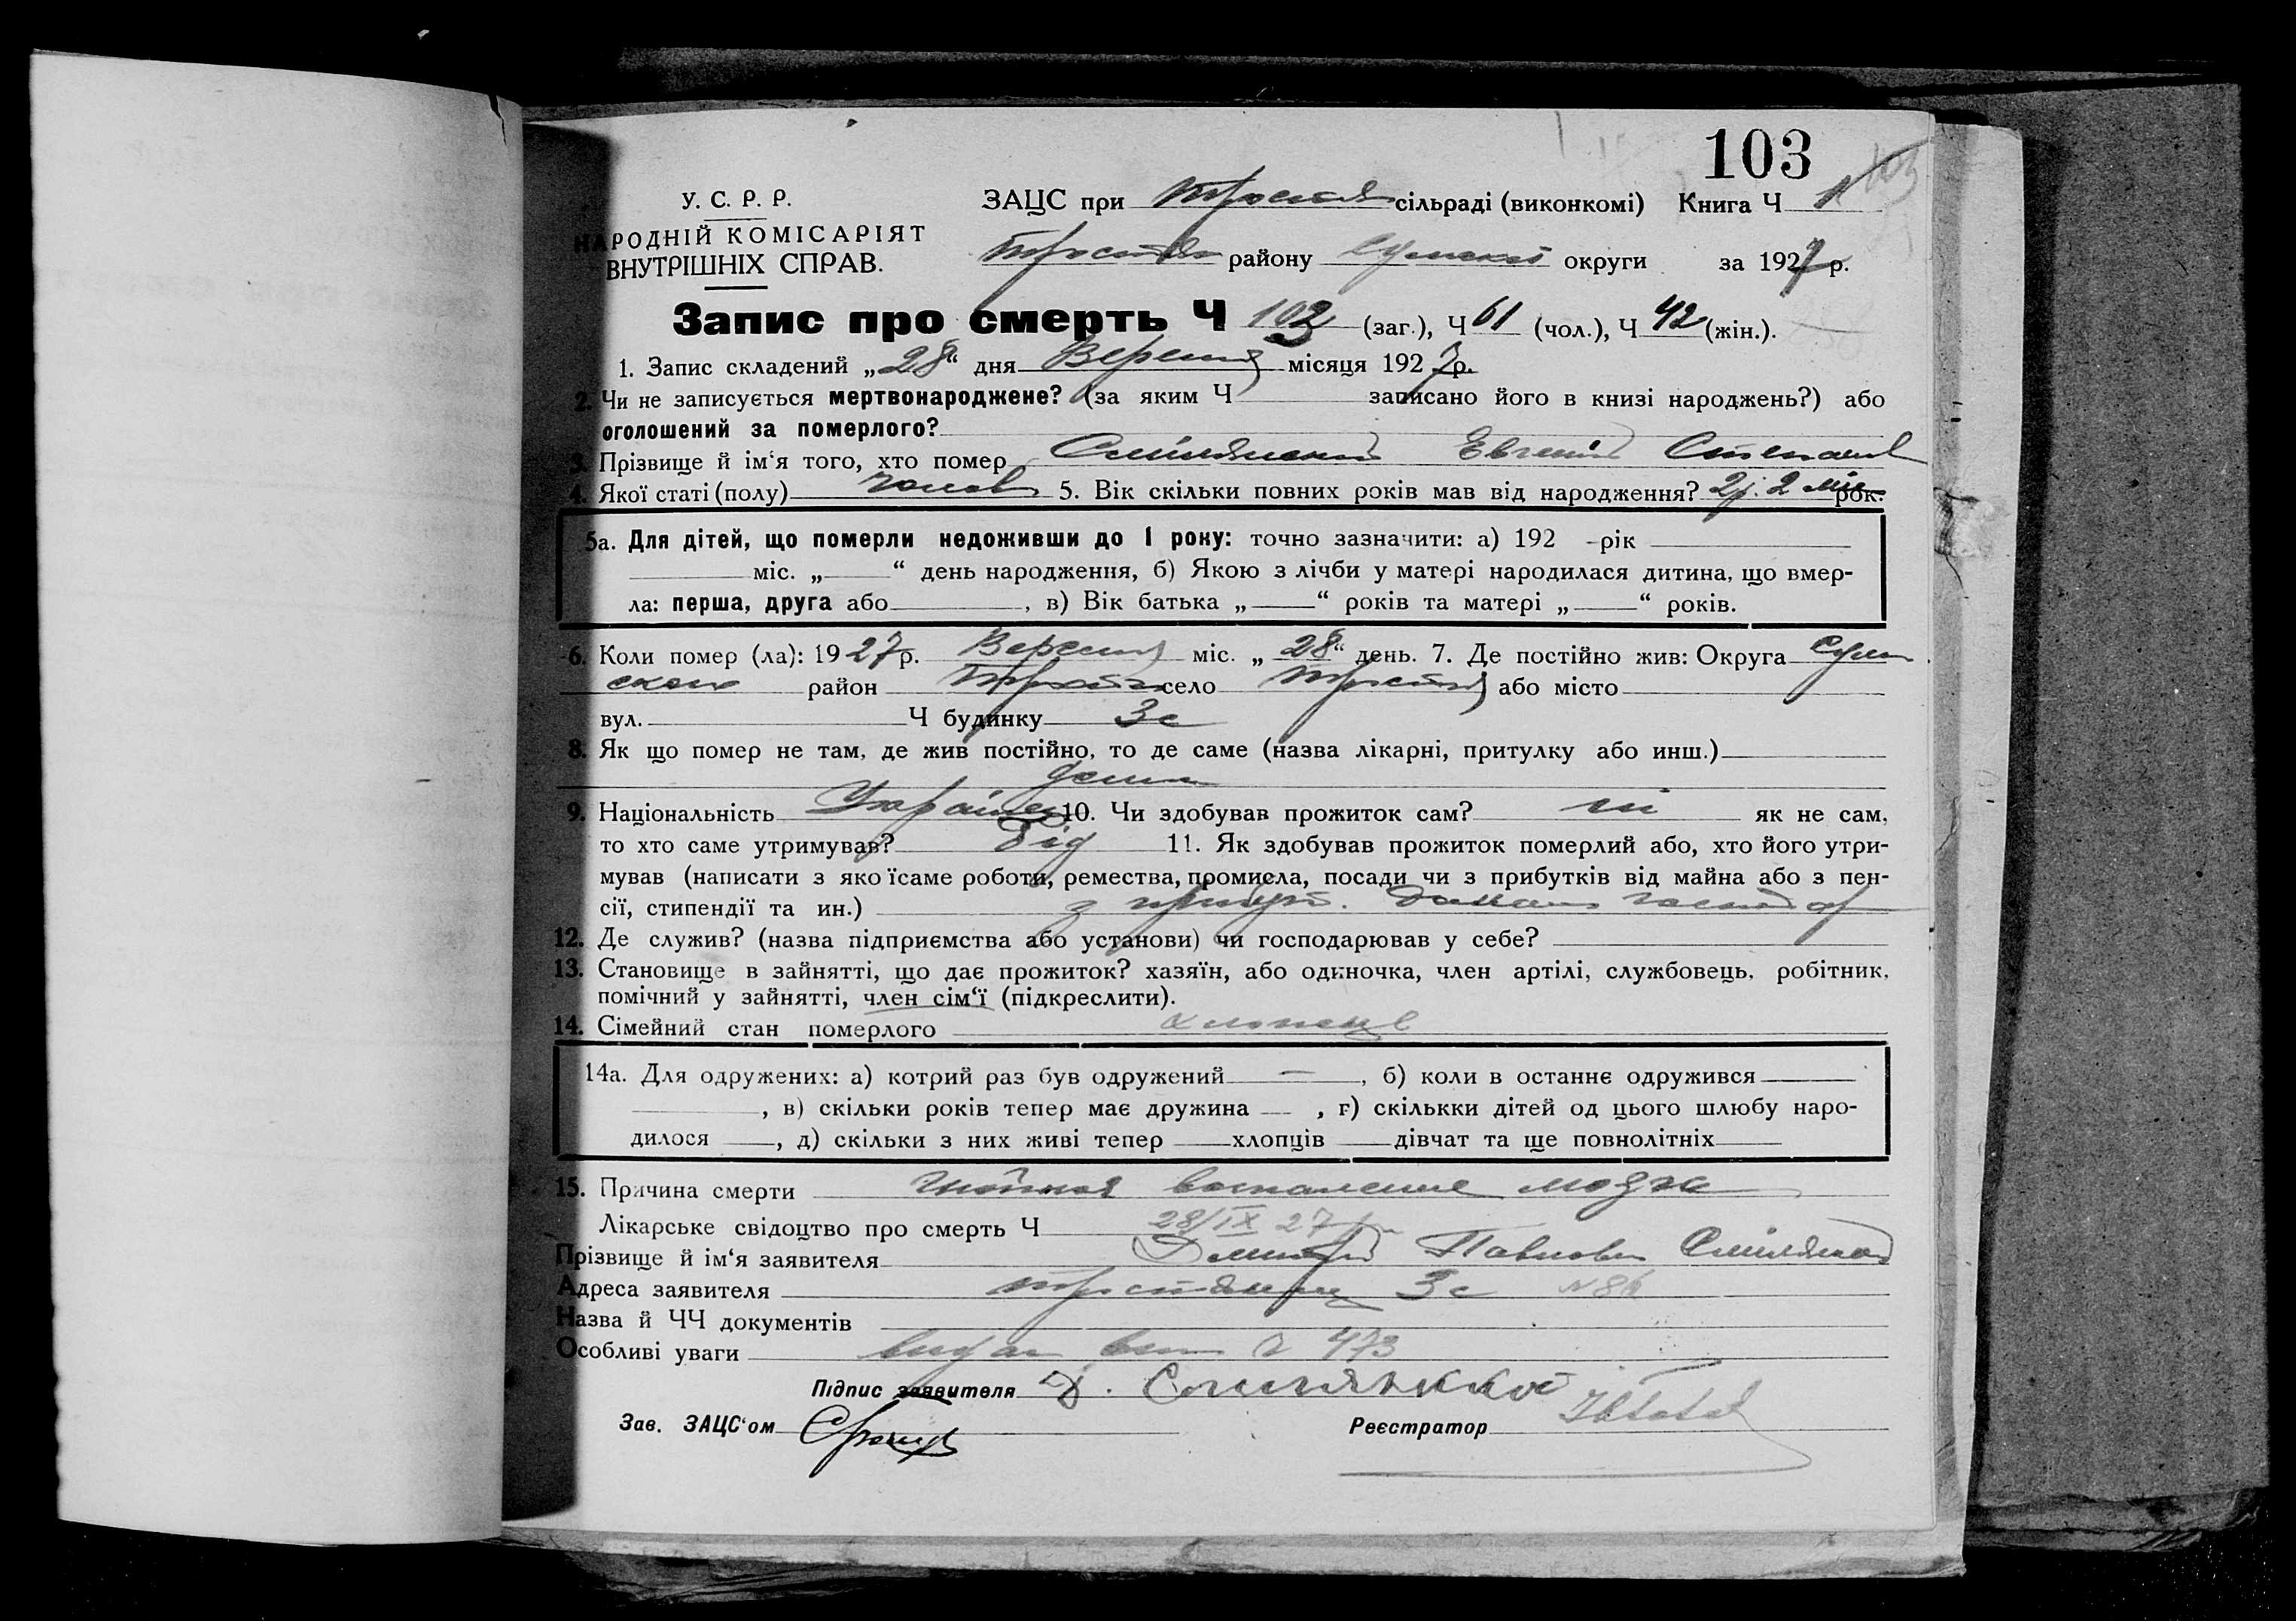 103
У. С. Р. Р.
НАРОДНІЙ КОМІСАРІЯТ
ВНУТРІШНІХ СПРАВ.
ЗАЦС при Тростян сільраді (виконкомі) Книга Ч
Тростян району Сумской округи за 1927 р.
Запис про смерть Ч 103 (заг.), Ч 61 (чол.), Ч 42 (жін.).
1. Запис складений „28“ дня Вересня місяця 1927 р.
2. Чи не записується мертвонароджене? (за яким Ч записано його в книзі народжень?) або
оголошений за померлого?
3. Прізвище й ім‘я того, хто помер Смілянский Евгений Степанов
4. Якої статі (полу) чолов 5. Вік скільки повних років мав від народження? 2 р. 2 міс рок.
5а. Для дітей, що померли недоживши до 1 року: точно зазначити: а) 192 -рік
міс. „ “ день народження, б) Якою з лічби у матері народилася дитина, що вмер-
ла: перша, друга або , в) Вік батька „ “ років та матері „ “ років.
6. Коли помер (ла): 1927 р. Вересня міс. „28“ день. 7. Де постійно жив: Округа Сум
ской район Тростян село Тростян або місто
вул. Ч будинку 3с
8. Як що помер не там, де жив постійно, то де саме (назва лікарні, притулку або инш.)
дома
9. Національність Українец 10. Чи здобував прожиток сам? ні як не сам,
то хто саме утримував? Дід 11. Як здобував прожиток померлий або, хто його утри-
мував (написати з яко їсаме роботи, ремества, промисла, посади чи з прибутків від майна або з пен-
сії, стипендії та ин.) з прибут. Домаш господар
12. Де служив? (назва підприємства або установи) чи господарював у себе?
13. Становище в зайнятті, що дає прожиток? хазяїн, або одиночка, член артілі, службовець, робітник,
помічний у зайнятті, член сім‘ї (підкреслити).
14. Сімейний стан померлого хлопець
14а. Для одружених: а) котрий раз був одружений — , б) коли в останнє одружився
, в) скільки років тепер має дружина , г) скількки дітей од цього шлюбу наро-
дилося , д) скільки з них живі тепер хлопців дівчат та ще повнолітніх
15. Причина смерти Гнойное воспаление мозга
Лікарське свідоцтво про смерть Ч 28/IX 27 р.
Прізвище й ім‘я заявителя Дмитрий Павлович Смілянский
Адреса заявителя Тростянец 3с № 86
Назва й ЧЧ документів
Особливі уваги видан вип Ч 473
Підпис заявителя Д. Смилянский
Зав. ЗАЦС‘ом Реєстратор